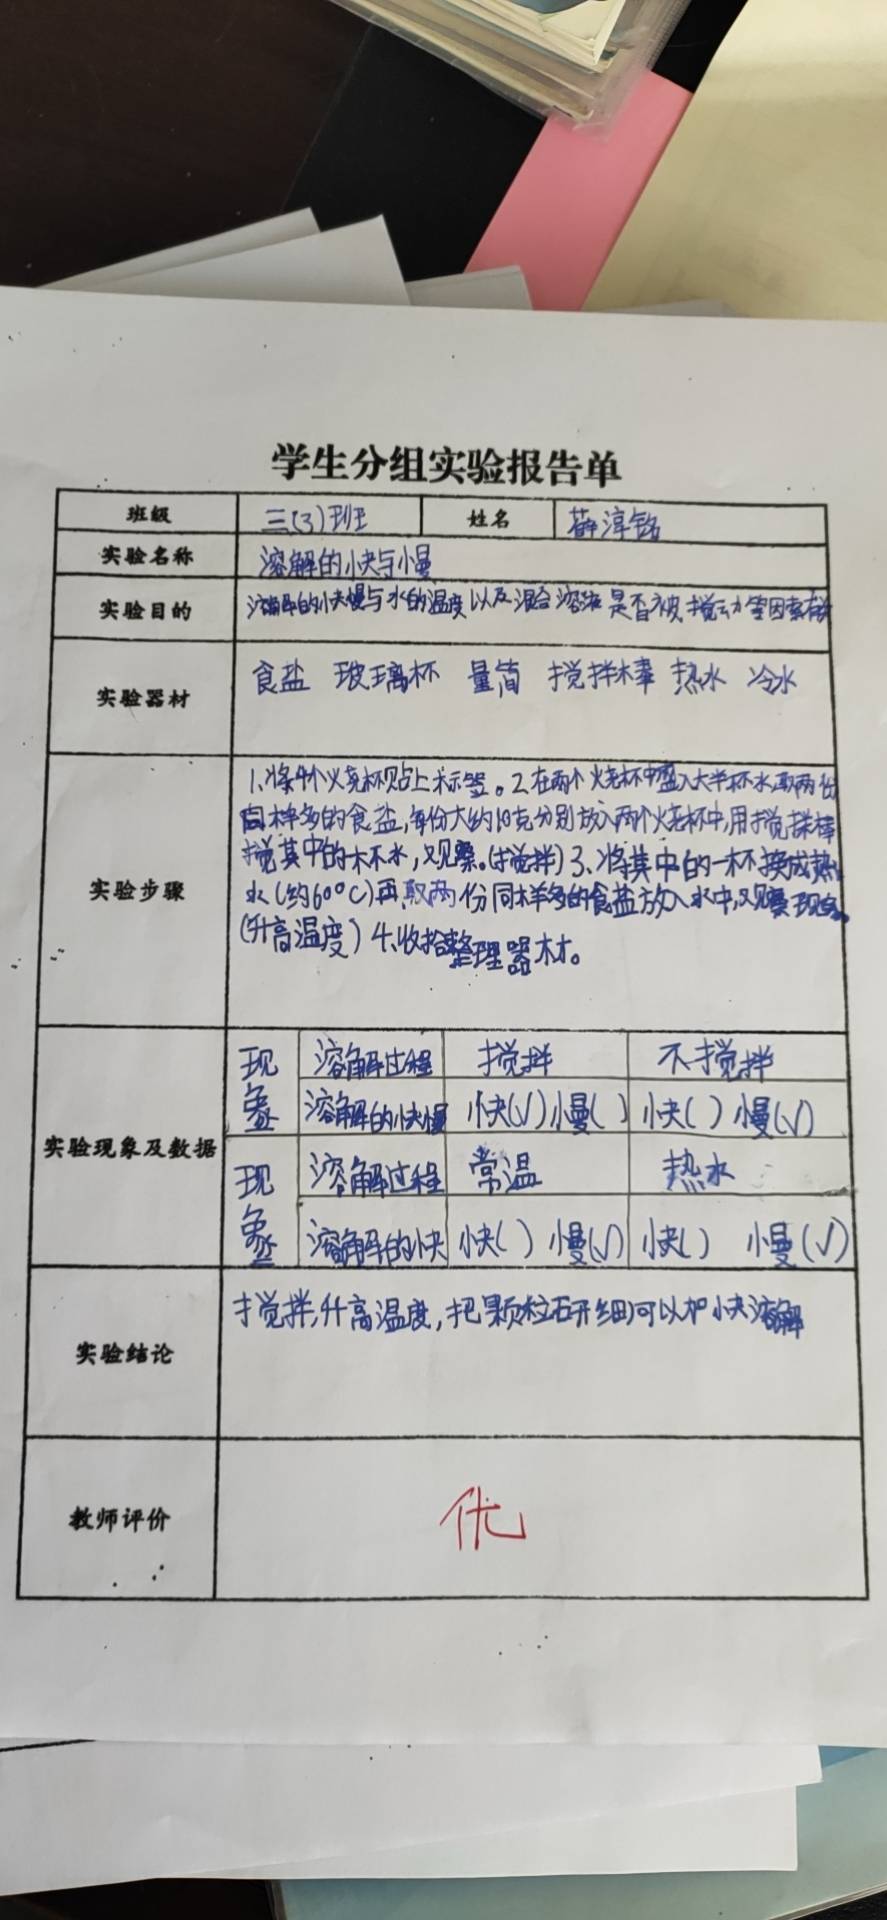 学生分组实验报告单
班级 三(3)班 姓名 薛淳铭
实验名称 溶解的快与慢
实验目的 溶解的快慢与水的温度以及混合溶液是否被搅动等因素有
实验器材 食盐 玻璃杯 量筒 搅拌棒 热水 冷水
实验步骤
1、将4个烧杯贴上标签。2、在两个烧杯中盛入大半杯水,取两份
同样多的食盐,每份大约10克分别放入两个烧杯中,用搅拌棒
搅其中的一杯水,观察。(搅拌)3、将其中的一杯换成热
水(约60°C)再取两份同样多的食盐放入水中,观察现象。
(升高温度)4、收拾整理器材。
实验现象及数据
现象 溶解过程 搅拌 不搅拌
溶解的快慢 快(√) 慢( ) 快( ) 慢(√)
现象 溶解过程 常温 热水
溶解的快 快( ) 慢(√) 快( ) 慢(√)
实验结论 搅拌,升高温度,把颗粒研细可以加快溶解
教师评价 优